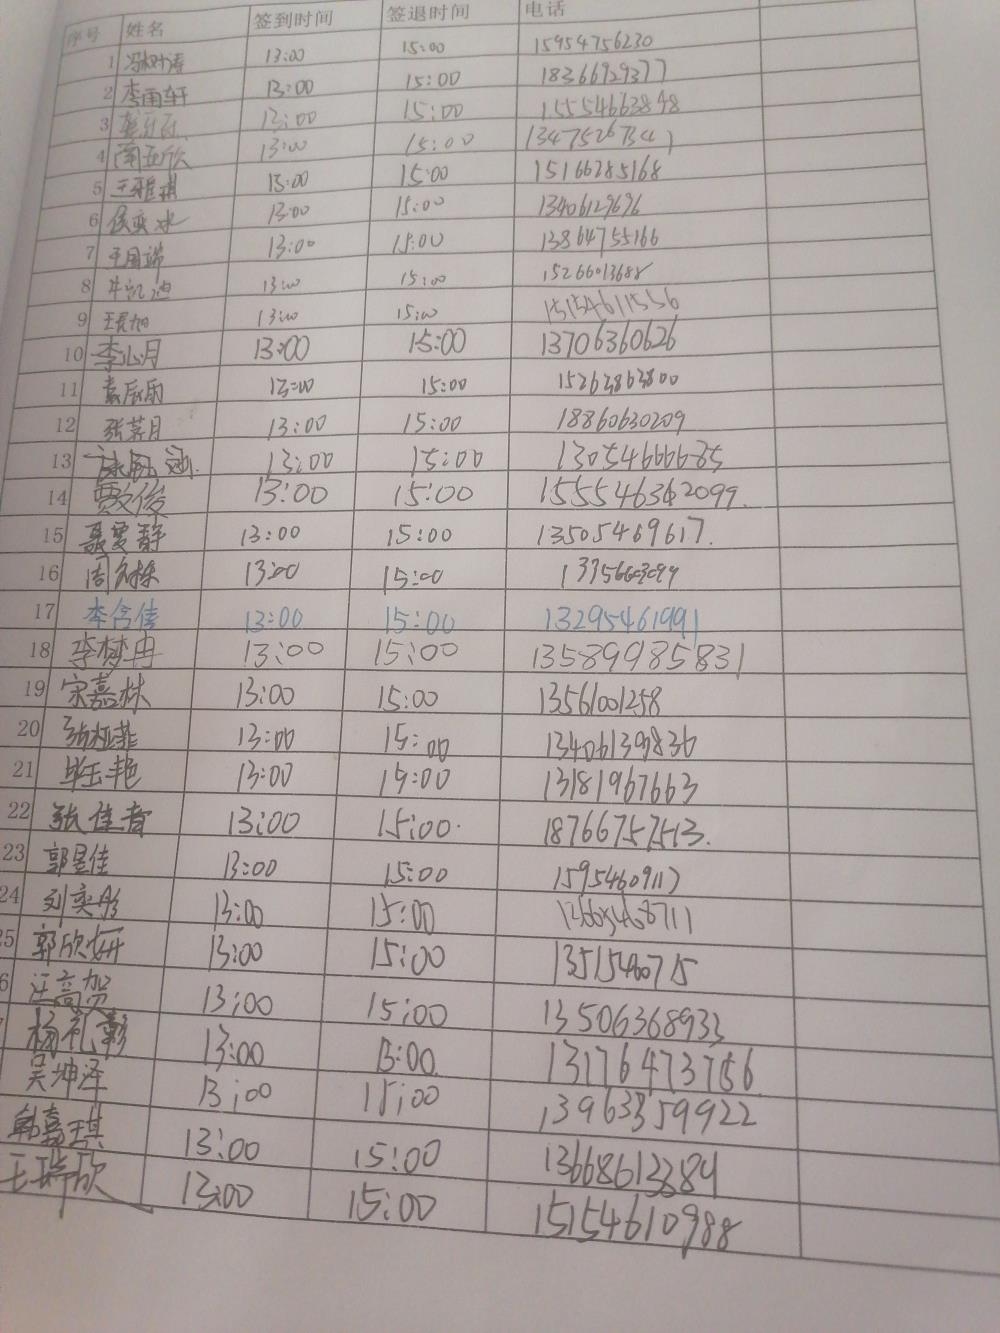 序号 姓名 签到时间 签退时间 电话
1 冯树涛 13:00 15:00 15954756230
2 李雨轩 13:00 15:00 18366929377
3 13:00 15:00 15554663898
4 南亚欣 13:00 15:00 13475267341
5 王雅琪 13:00 15:00 15166285168
6 侯奕冰 13:00 15:00 13406129696
7 王国瑞 13:00 15:00 13864755166
8 牛凯迪 13:00 15:00 15266013688
9 王君旭 13:00 15:00 15154611556
10 李心月 13:00 15:00 13706360626
11 袁辰雨 13:00 15:00 15263863800
12 张菜月 13:00 15:00 18860630209
13 13:00 15:00 13054666685
14 贾文俊 13:00 15:00 155546362099.
15 聂雯静 13:00 15:00 13505469617.
16 13:00 15:00
17 李含佳 13:00 15:00 13295461991
18 李梦冉 13:00 15:00 13589985831
19 宋嘉林 13:00 15:00 13561001258
20 张桠菲 13:00 15:00 13406139836
21 毕玉艳 13:00 15:00 13181967663
22 张佳音 13:00 15:00. 18766757513.
23 郭昱佳 13:00 15:00 15954609117
24 刘奕彤 13:00 15:00
25 郭欣妍 13:00 15:00 13515460715
6 汪高贺 13:00 15:00 13506368933
杨礼彰 13:00 13:00. 13176473756
吴坤泽 13:00 15:00 13963359922
韩嘉琪 13:00 15:00 13668613384
王瑞欣 13:00 15:00 15154610988